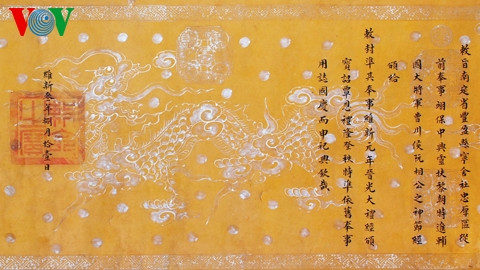 VOV
敕旨南定省豐盈縣寧舍社忠厚區從
前奉事翊保中興靈扶黎朝特進輔
國大將軍曹川侯阮相公之神節經
頒給
敕封準其奉事維新元年晉光大禮經頒
寶詔覃恩禮隆登秩特準依舊奉事
用誌國慶而申祀典欽哉
維新叁年捌月拾壹日